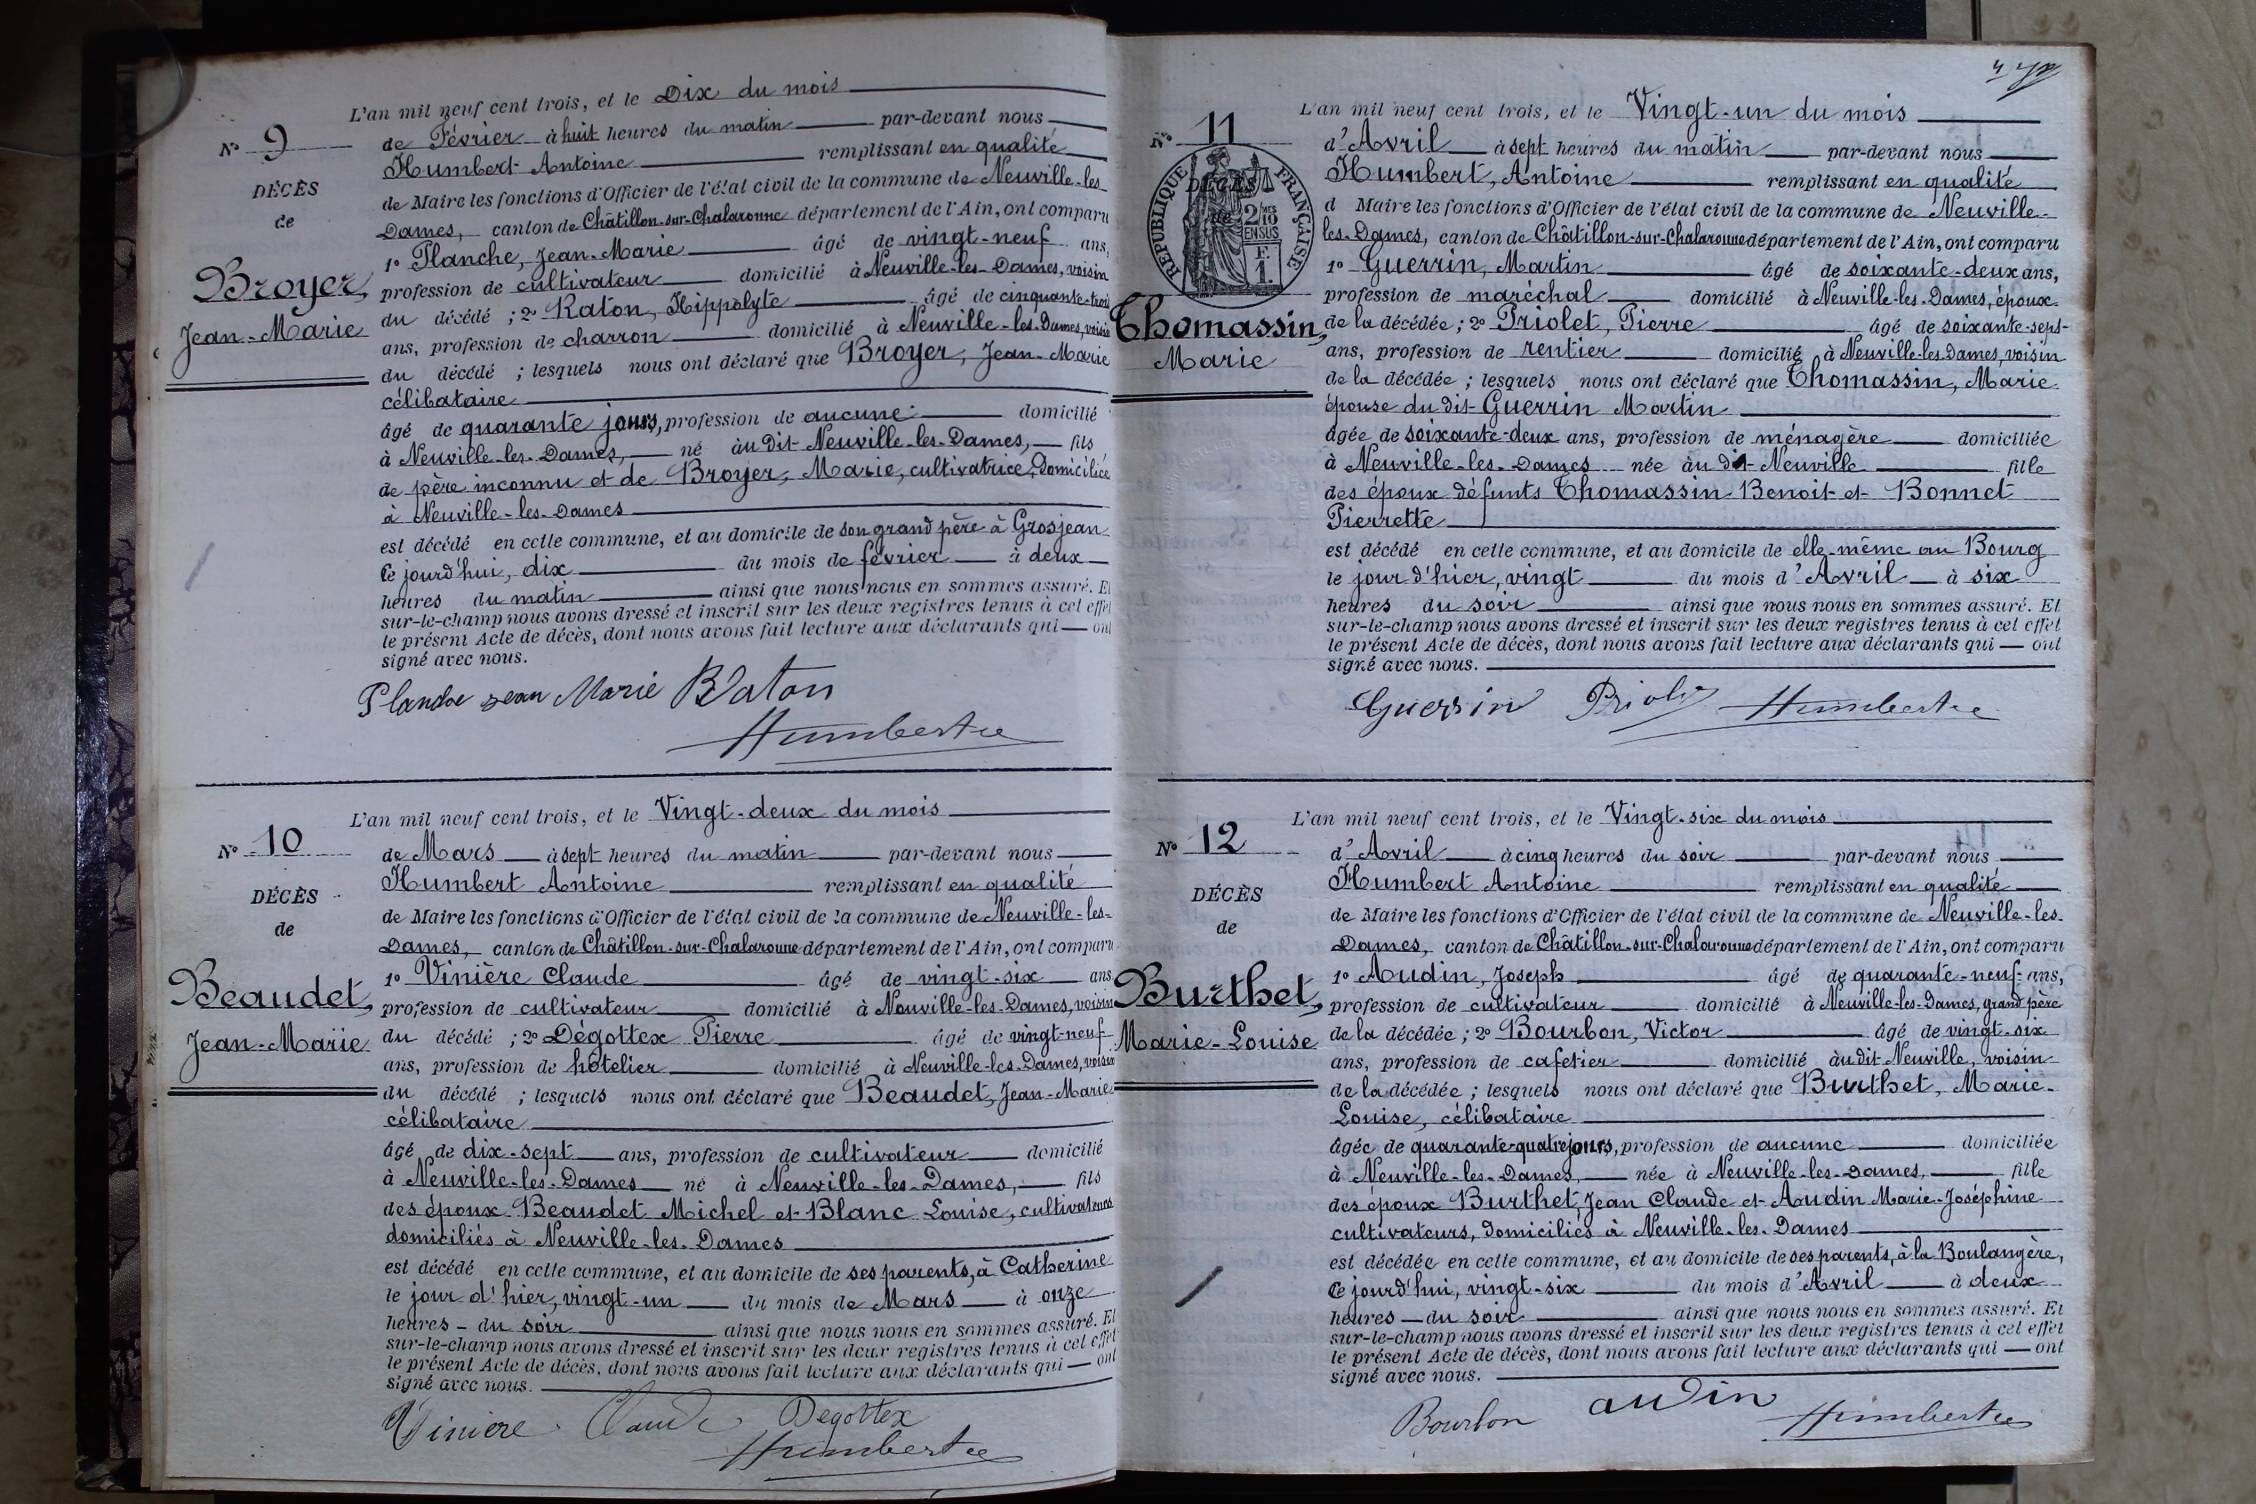 L'an mil neuf cent trois, et le Dix du mois
N° 9
de Février à huit heures du matin par-devant nous
Humbert Antoine remplissant en qualité
DÉCÈS
de Maire les fonctions d'Officier de l'état civil de la commune de Neuville-les-
de
Dames, canton de Châtillon-sur-Chalaronne département de l'Ain, ont comparu
1° Planche, Jean-Marie âgé de vingt-neuf ans,
Broyer,
profession de cultivateur domicilié à Neuville-les-Dames, voisin
Jean-Marie
du décédé ; 2° Raton, Hippolyte âgé de cinquante-trois
ans, profession de charron domicilié à Neuville-les-Dames, voisin
du décédé ; lesquels nous ont déclaré que Broyer, Jean-Marie
célibataire
âgé de quarante jours, profession de aucune domicilié
à Neuville-les-Dames, né àu dit Neuville-les-Dames, fils
de père inconnu et de Broyer, Marie, cultivatrice, domiciliée
à Neuville-les-Dames
est décédé en cette commune, et au domicile de son grand père à Grosjean
Ce jourd'hui, dix du mois de février à deux
heures du matin ainsi que nous nous en sommes assuré. Et
sur-le-champ nous avons dressé et inscrit sur les deux registres tenus à cet effet
le présent Acte de décès, dont nous avons fait lecture aux déclarants qui ont
signé avec nous.
Planche Jean Marie Raton
Humbert
L'an mil neuf cent trois, et le Vingt-deux du mois
N° 10
de Mars à sept heures du matin par-devant nous
Humbert Antoine remplissant en qualité
DÉCÈS
de Maire les fonctions d'Officier de l'état civil de la commune de Neuville-les-
de
Dames, canton de Châtillon-sur-Chalaronne département de l'Ain, ont comparu
1° Vinière Claude âgé de vingt-six ans
Beaudet,
profession de cultivateur domicilié à Neuville-les-Dames, voisin
Jean-Marie
du décédé ; 2° Dégottex Pierre âgé de vingt-neuf
ans, profession de hôtelier domicilié à Neuville-les-Dames, voisin
du décédé ; lesquels nous ont déclaré que Beaudet, Jean-Marie
célibataire
âgé de dix-sept ans, profession de cultivateur domicilié
à Neuville-les-Dames né à Neuville-les-Dames, fils
des époux Beaudet Michel et Blanc Louise, cultivateurs
domiciliés à Neuville-les-Dames
est décédé en cette commune, et au domicile de ses parents, à Catherine
le jour d'hier, vingt-un du mois de Mars à onze
heures du soir ainsi que nous nous en sommes assuré. Et
sur-le-champ nous avons dressé et inscrit sur les deux registres tenus à cet effet
le présent Acte de décès, dont nous avons fait lecture aux déclarants qui ont
signé avec nous.
Vinière Claude Degottex
Humbert
4
L'an mil neuf cent trois, et le Vingt-un du mois
N° 11
d'Avril à sept heures du matin par-devant nous
RÉPUBLIQUE FRANÇAISE
2/10 EN SUS
F. 1.
DÉCÈS
de
Humbert, Antoine remplissant en qualité
d Maire les fonctions d'Officier de l'état civil de la commune de Neuville-
les-Dames, canton de Châtillon-sur-Chalaronne département de l'Ain, ont comparu
1° Guerrin, Martin âgé de soixante-deux ans,
profession de maréchal domicilié à Neuville-les-Dames, époux
Thomassin,
de la décédée ; 2° Priolet, Pierre âgé de soixante-sept
Marie
ans, profession de rentier domicilié à Neuville-les-Dames, voisin
de la décédée ; lesquels nous ont déclaré que Thomassin, Marie
épouse du dit Guerrin Martin
âgée de soixante-deux ans, profession de ménagère domiciliée
à Neuville-les-Dames née àu dit Neuville fille
des époux défunts Thomassin Benoit et Bonnet
Pierrette
est décédé en cette commune, et au domicile de elle-même au Bourg
le jour d'hier, vingt du mois d'Avril à six
heures du soir ainsi que nous nous en sommes assuré. Et
sur-le-champ nous avons dressé et inscrit sur les deux registres tenus à cet effet
le présent Acte de décès, dont nous avons fait lecture aux déclarants qui ont
signé avec nous.
Guerrin Priolet Humbert
L'an mil neuf cent trois, et le Vingt-six du mois
N° 12
d'Avril à cinq heures du soir par-devant nous
Humbert Antoine remplissant en qualité
DÉCÈS
de Maire les fonctions d'Officier de l'état civil de la commune de Neuville-les-
de
Dames, canton de Châtillon-sur-Chalaronne département de l'Ain, ont comparu
1° Audin, Joseph âgé de quarante-neuf ans,
Burthet,
profession de cultivateur domicilié à Neuville-les-Dames, grand père
Marie-Louise
de la décédée ; 2° Bourbon, Victor âgé de vingt-six
ans, profession de cafetier domicilié àu dit Neuville, voisin
de la décédée ; lesquels nous ont déclaré que Burthet, Marie-
Louise, célibataire
âgée de quarante-quatre jours, profession de aucune domiciliée
à Neuville-les-Dames, née à Neuville-les-Dames, fille
des époux Burthet, Jean Claude et Audin Marie-Joséphine
cultivateurs, domiciliés à Neuville-les-Dames
est décédée en cette commune, et au domicile de ses parents, à la Boulangère,
Ce jourd'hui, vingt-six du mois d'Avril à deux
heures du soir ainsi que nous nous en sommes assuré. Et
sur-le-champ nous avons dressé et inscrit sur les deux registres tenus à cet effet
le présent Acte de décès, dont nous avons fait lecture aux déclarants qui ont
signé avec nous.
Bourbon audin Humbert